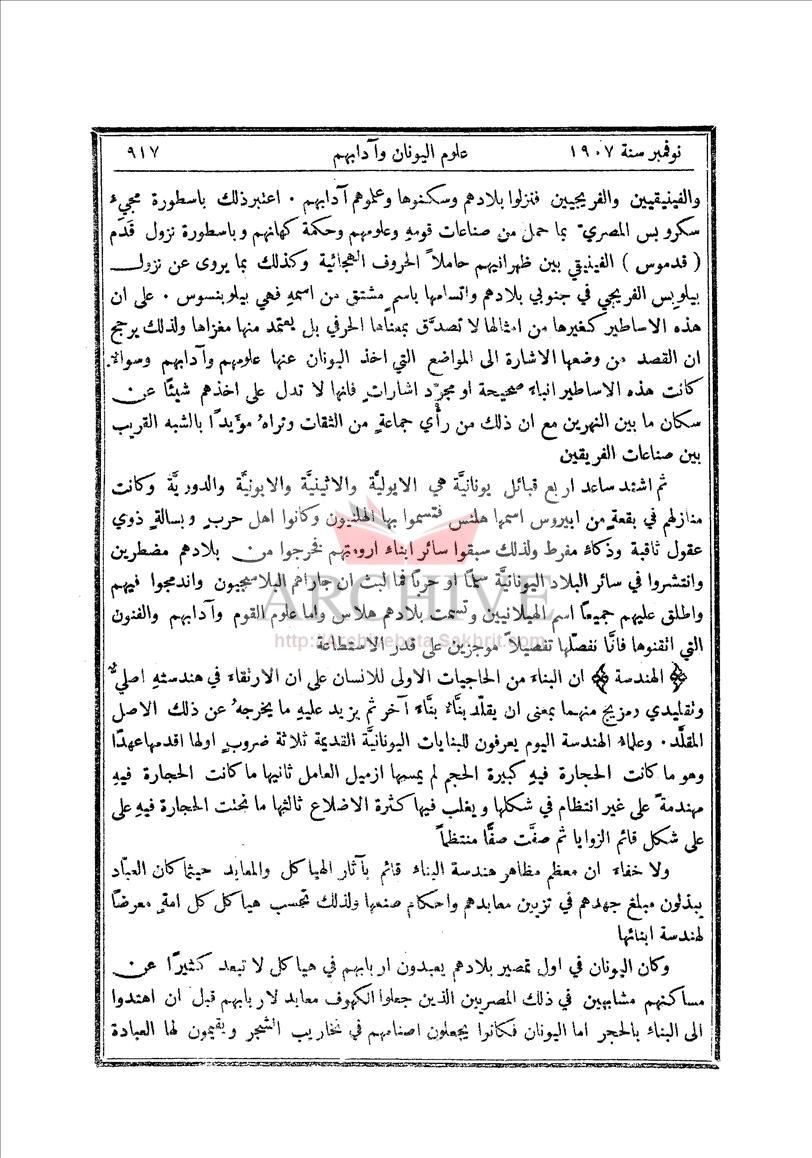 نوفمبر سنة ١٩٠٧ علوم اليونان وآدابهم ٩١٧
والفينيقيين والفريجيين فنزلوا بلادهم وسكنوها وعلموهم آدابهم . اعتبر ذلك باسطورة مجيء
سكروبس المصري بما حمل من صناعات قومهِ وعلومهم وحكمة كهانهم وباسطورة نزول قَدَم
( قدموس ) الفينيقي بين ظهرانيهم حاملاً الحروف الهجائية وكذلك بما يروى عن نزول
بيلوبس الفريجي في جنوبي بلادهم واتسامها باسمٍ مشتق من اسمهِ فهي بيلوبنسوس . على ان
هذه الاساطير كغيرها من امثالها لا تصدَّق بمعناها الحرفي بل يعتمد منها مغزاها ولذلك يرجح
ان القصد من وضعها الاشارة الى المواضع التي اخذ اليونان عنها علومهم وآدابهم وسواءٌ
كانت هذه الاساطير انباءً صحيحة او مجرَّد اشارات فانها لا تدل على اخذهم شيئًا عن
سكان ما بين النهرين مع ان ذلك من رأْي جماعةٍ من الثقات وتراهُ مؤيدًا بالشبه القريب
بين صناعات الفريقين
ثم اشتد ساعد اربع قبائل يونانيَّة هي الايوليَّة والاثينيَّة والايونيَّة والدوريَّة وكانت
منازلهم في بقعةٍ من ابيروس اسمها هلنس فتسموا بها الهلنيون وكانوا اهل حربٍ وبسالةٍ ذوي
عقول ثاقبة وذكاء مفرط ولذلك سبقوا سائر ابناء ارومتهم فخرجوا من بلادهم مضطرين
وانتشروا في سائر البلاد اليونانيَّة سلمًا او حربًا فما لبث ان جاراهم البلاسجيون واندمجوا فيهم
واطلق عليهم جميعًا اسم الهيلانيين وتسمت بلادهم هلاس واما علوم القوم وآدابهم والفنون
التي اتقنوها فانَّا نفصّلها تفصيلاً موجزين على قدر الاستطاعة
﴿ الهندسة ﴾ ان البناء من الحاجيات الاولى للانسان على ان الارتقاء في هندستهِ اصليٌّ
وتقليدي ومزيج منهما بمعنى ان يقلّد بنَّاءٌ بنَّاءً آخر ثم يزيد عليهِ ما يخرجهُ عن ذلك الاصل
المقلَّد . وعلماءُ الهندسة اليوم يعرفون للبنايات اليونانيَّة القديمة ثلاثة ضروبٍ اولها اقدمها عهدًا
وهو ما كانت الحجارة فيهِ كبيرة الحجم لم يمسها ازميل العامل ثانيها ما كانت الحجارة فيهِ
مهندمةً على غير انتظام في شكلها ويغلب فيها كثرة الاضلاع ثالثها ما نحتت الحجارة فيهِ على
على شكل قائم الزوايا ثم صفَّت صفًّا منتظماً
ولا خفاء ان معظم مظاهر هندسة البناء قائم بآثار الهياكل والمعابد حيثما كان العبَّاد
يبذلون مبلغ جهدهم في تزيين معابدهم واحكام صنعها ولذلك تحسب هياكل كل امةٍ معرضًا
لهندسة ابنائها
وكان اليونان في اول تمصير بلادهم يعبدون اربابهم في هياكل لا تبعد كثيرًا عن
مساكنهم مشابهين في ذلك المصريين الذين جعلوا الكهوف معابد لاربابهم قبل ان اهتدوا
الى البناء بالحجر اما اليونان فكانوا يجعلون اصنامهم في نخاريب الشجر ويقيمون لها العبادة
ARCHIVE
http://Archivebeta.Sakhrit.com